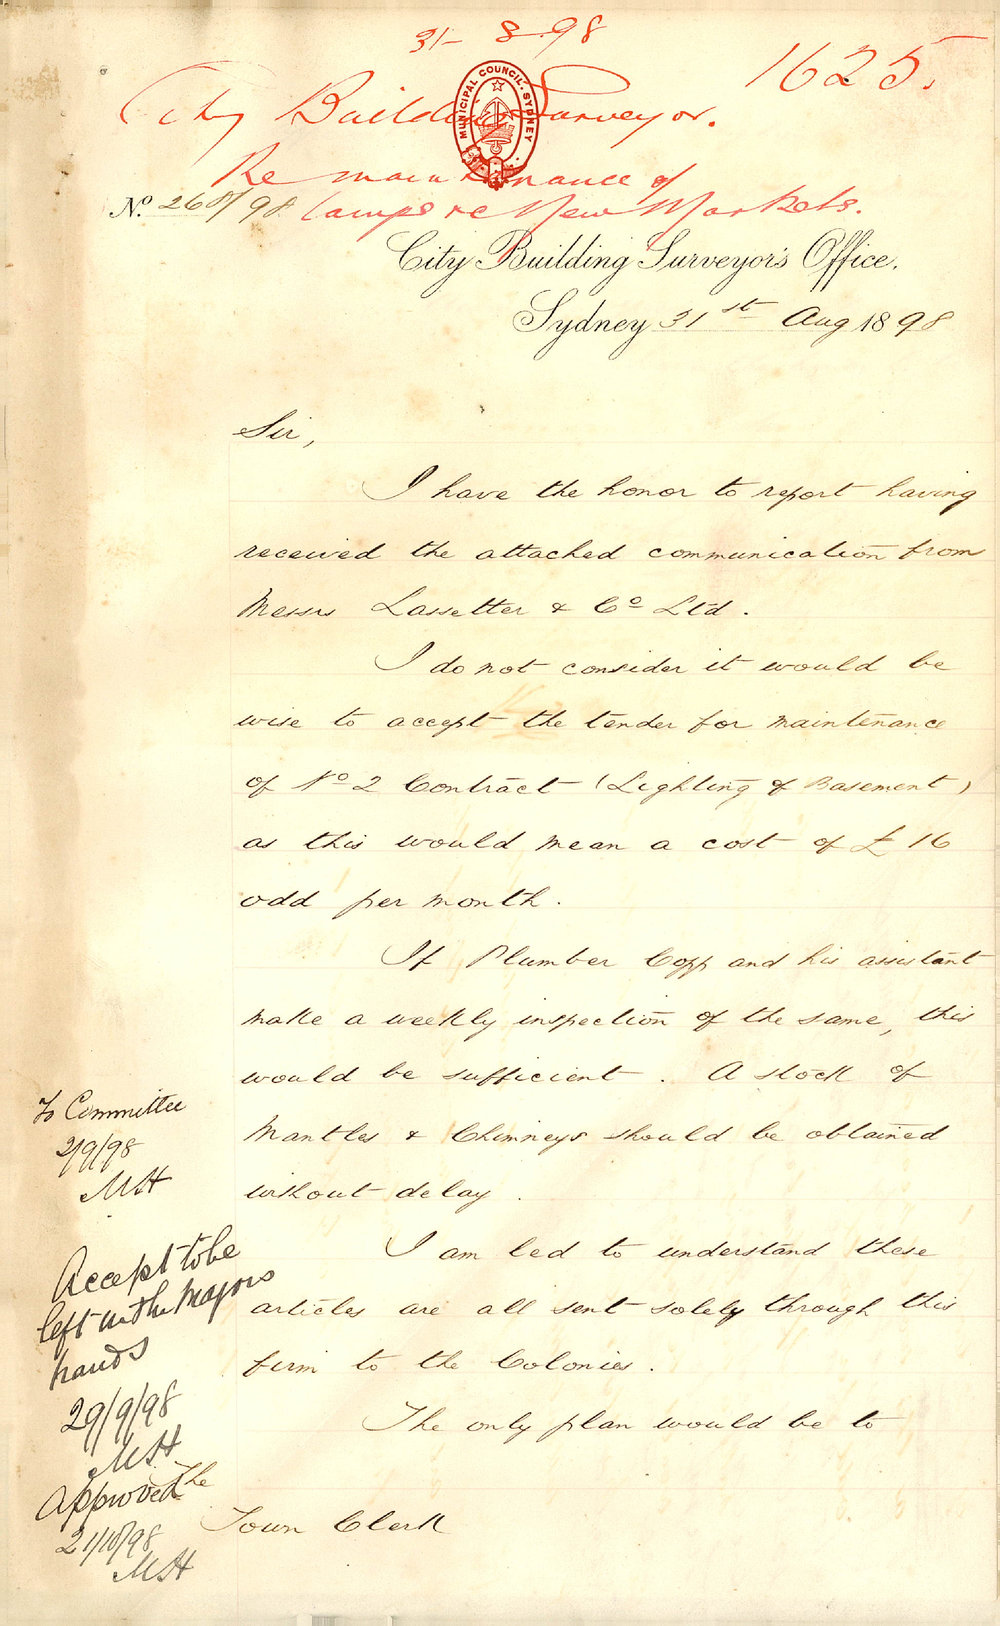 31- 8-98
1625.
City Building Surveyor.
MUNICIPAL COUNCIL. SYDNEY
Re maintenance of
No. 268/98 lamps re New Markets.
City Building Surveyor's Office.
Sydney 31st Aug 1898
Sir,
I have the honor to report having
received the attached communication from
Messrs Lassetter & Co Ltd.
I do not consider it would be
wise to accept the tender for maintenance
of No 2 Contract (Lighting of Basement)
as this would mean a cost of £16
odd per month.
If Plumber Copp and his assistant
make a weekly inspection of the same, this
would be sufficient. A stock of
Mantles & Chimneys should be obtained
without delay.
I am led to understand these
articles are all sent solely through this
firm to the Colonies.
The only plan would be to
The
Town Clerk
To Committee
2/9/98
MH
Accept to be
left in the Mayors
hands
29/9/98
MH
Approved
21/10/98
MH